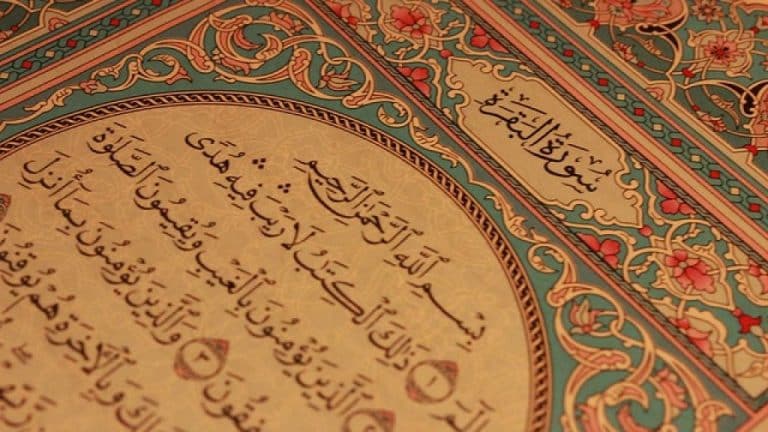 سُورَةُ البَقَرَةِ
بِسْمِ ٱللَّهِ ٱلرَّحْمَٰنِ ٱلرَّحِيمِ
الٓمٓ ١ ذَٰلِكَ ٱلْكِتَٰبُ لَا رَيْبَ ۛ فِيهِ ۛ هُدًى
ٱلَّذِينَ يُؤْمِنُونَ بِٱلْغَيْبِ وَيُقِيمُونَ ٱلصَّلَوٰةَ
٣ وَٱلَّذِينَ يُؤْمِنُونَ بِمَآ أُنزِلَ
وَبِٱلْأٓخِرَةِ هُمْ يُوقِنُونَ